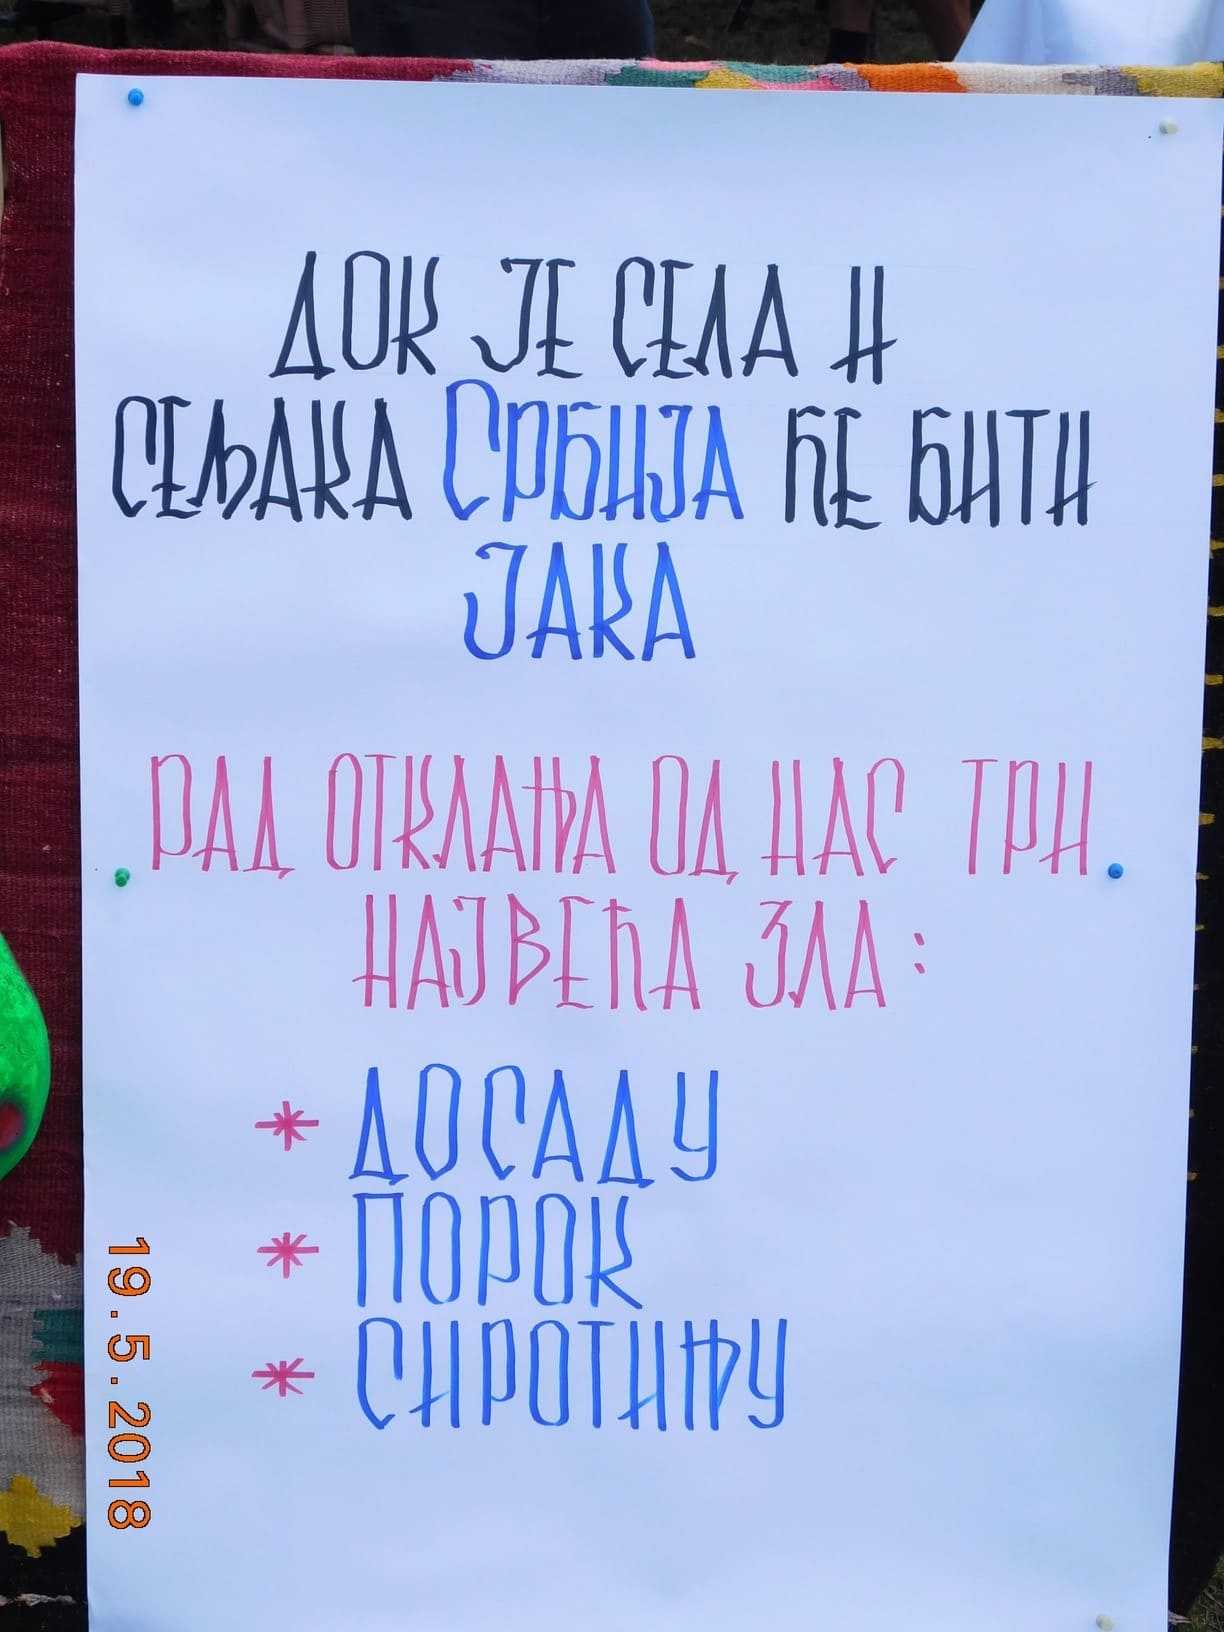 ДОК ЈЕ СЕЛА И
СЕЉАКА СРБИЈА ЋЕ БИТИ
ЈАКА
РАД ОТКЛАЊА ОД НАС ТРИ
НАЈВЕЋА ЗЛА:
* ДОСАДУ
* ПОРОК
* СИРОТИЊУ
19.5.2018